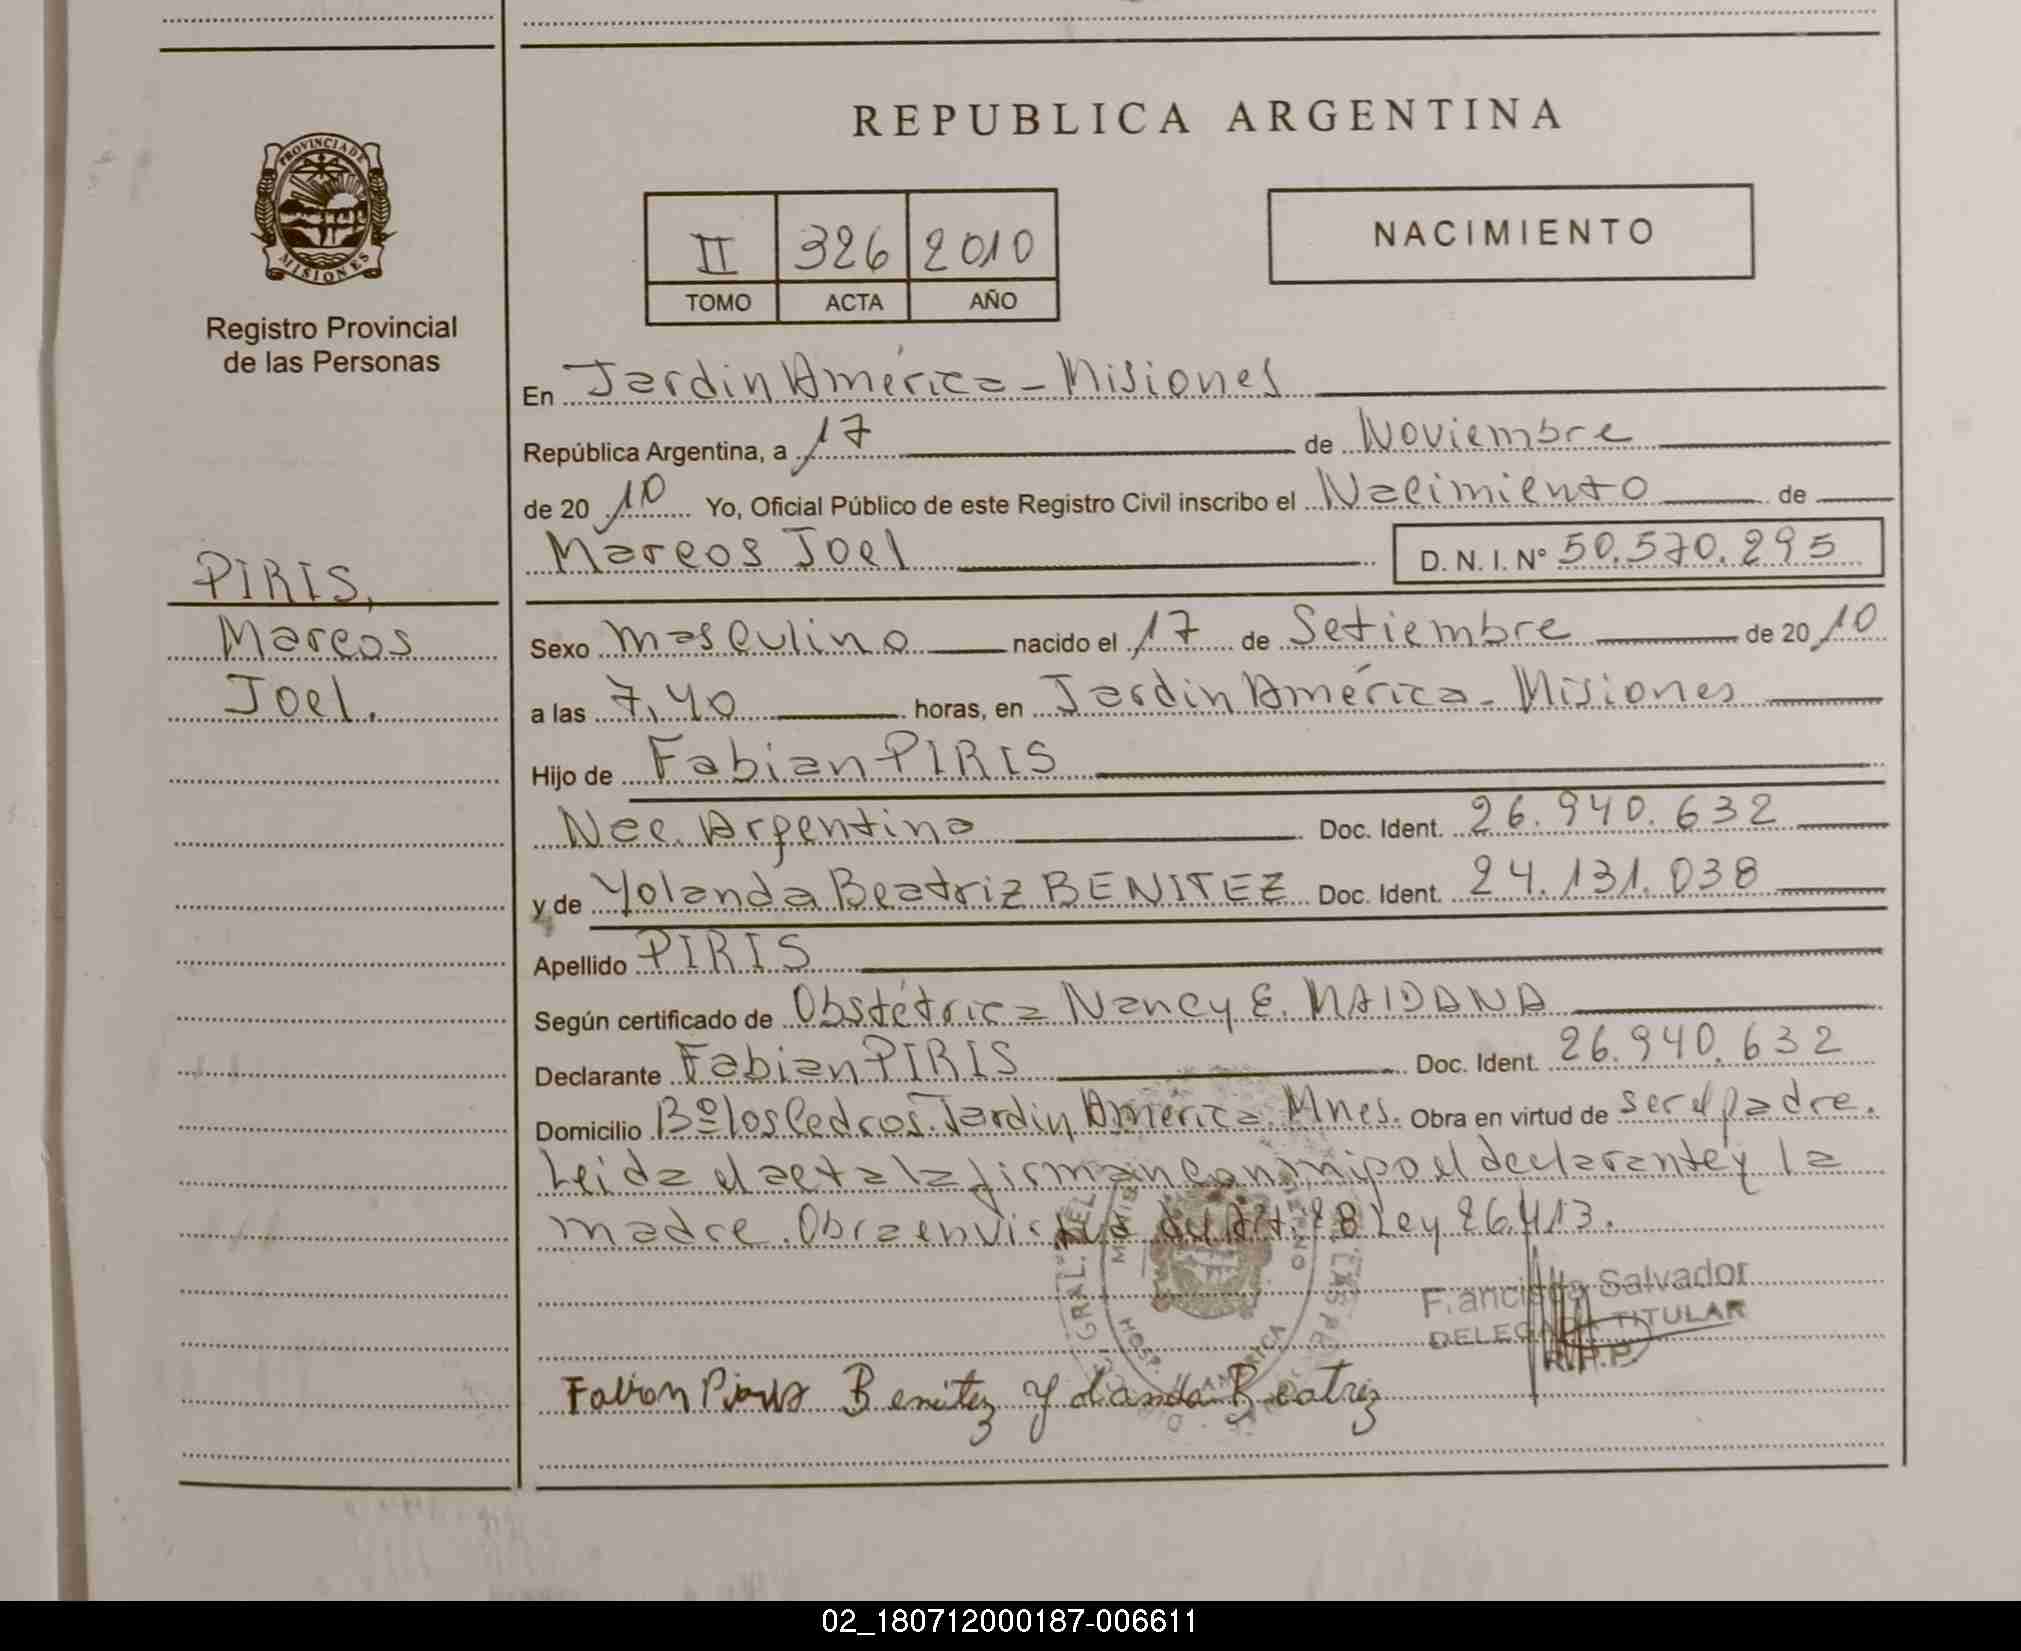 REPUBLICA ARGENTINA
PROVINCIA DE
MISIONES
Registro Provincial
de las Personas
II 326 2010
TOMO ACTA AÑO
NACIMIENTO
En Jardin América - Misiones
República Argentina, a 17 de Noviembre
de 20 10 Yo, Oficial Público de este Registro Civil inscribo el Nacimiento de
Marcos Joel D. N. I. Nº 50.570.295
PIRIS,
Marcos
Joel.
Sexo masculino nacido el 17 de Setiembre de 20 10
a las 7,40 horas, en Jardin América - Misiones
Hijo de Fabian PIRIS
Nac. Argentina Doc. Ident. 26.940.632
y de Yolanda Beatriz BENITEZ Doc. Ident. 24.131.038
Apellido PIRIS
Según certificado de Obstétrica Nancy E. MAIDANA
Declarante Fabian PIRIS Doc. Ident. 26.940.632
Domicilio Bº los Cedros. Jardin América. Mnes. Obra en virtud de ser el padre.
Leida el acta la firman conmigo el declarante y la
madre. Obra en virtud del Art. 28 Ley 26.413.
Francisca Salvador
DELEGADA TITULAR
R.P.P.
Fabian Piris Benitez Yolanda Beatriz
02_180712000187-006611